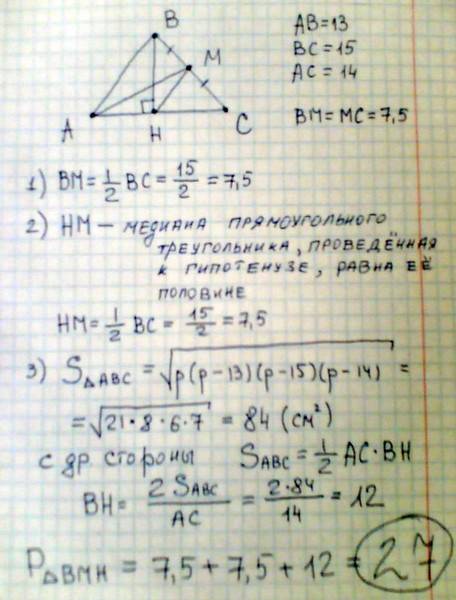 B
M
A
H
C
AB=13
BC=15
AC=14
BM=MC=7,5
1) BM=1/2 BC=15/2=7,5
2) HM – МЕДИАНА ПРЯМОУГОЛЬНОГО
ТРЕУГОЛЬНИКА, ПРОВЕДЁННАЯ
К ГИПОТЕНУЗЕ, РАВНА ЕЁ
ПОЛОВИНЕ
HM=1/2 BC=15/2=7,5
3) S△ABC=√p(p-13)(p-15)(p-14) =
=√21·8·6·7 = 84 (см²)
с др стороны SABC=1/2 AC·BH
BH= 2SABC/AC = 2·84/14 = 12
P△BMH = 7,5+7,5+12 = 27